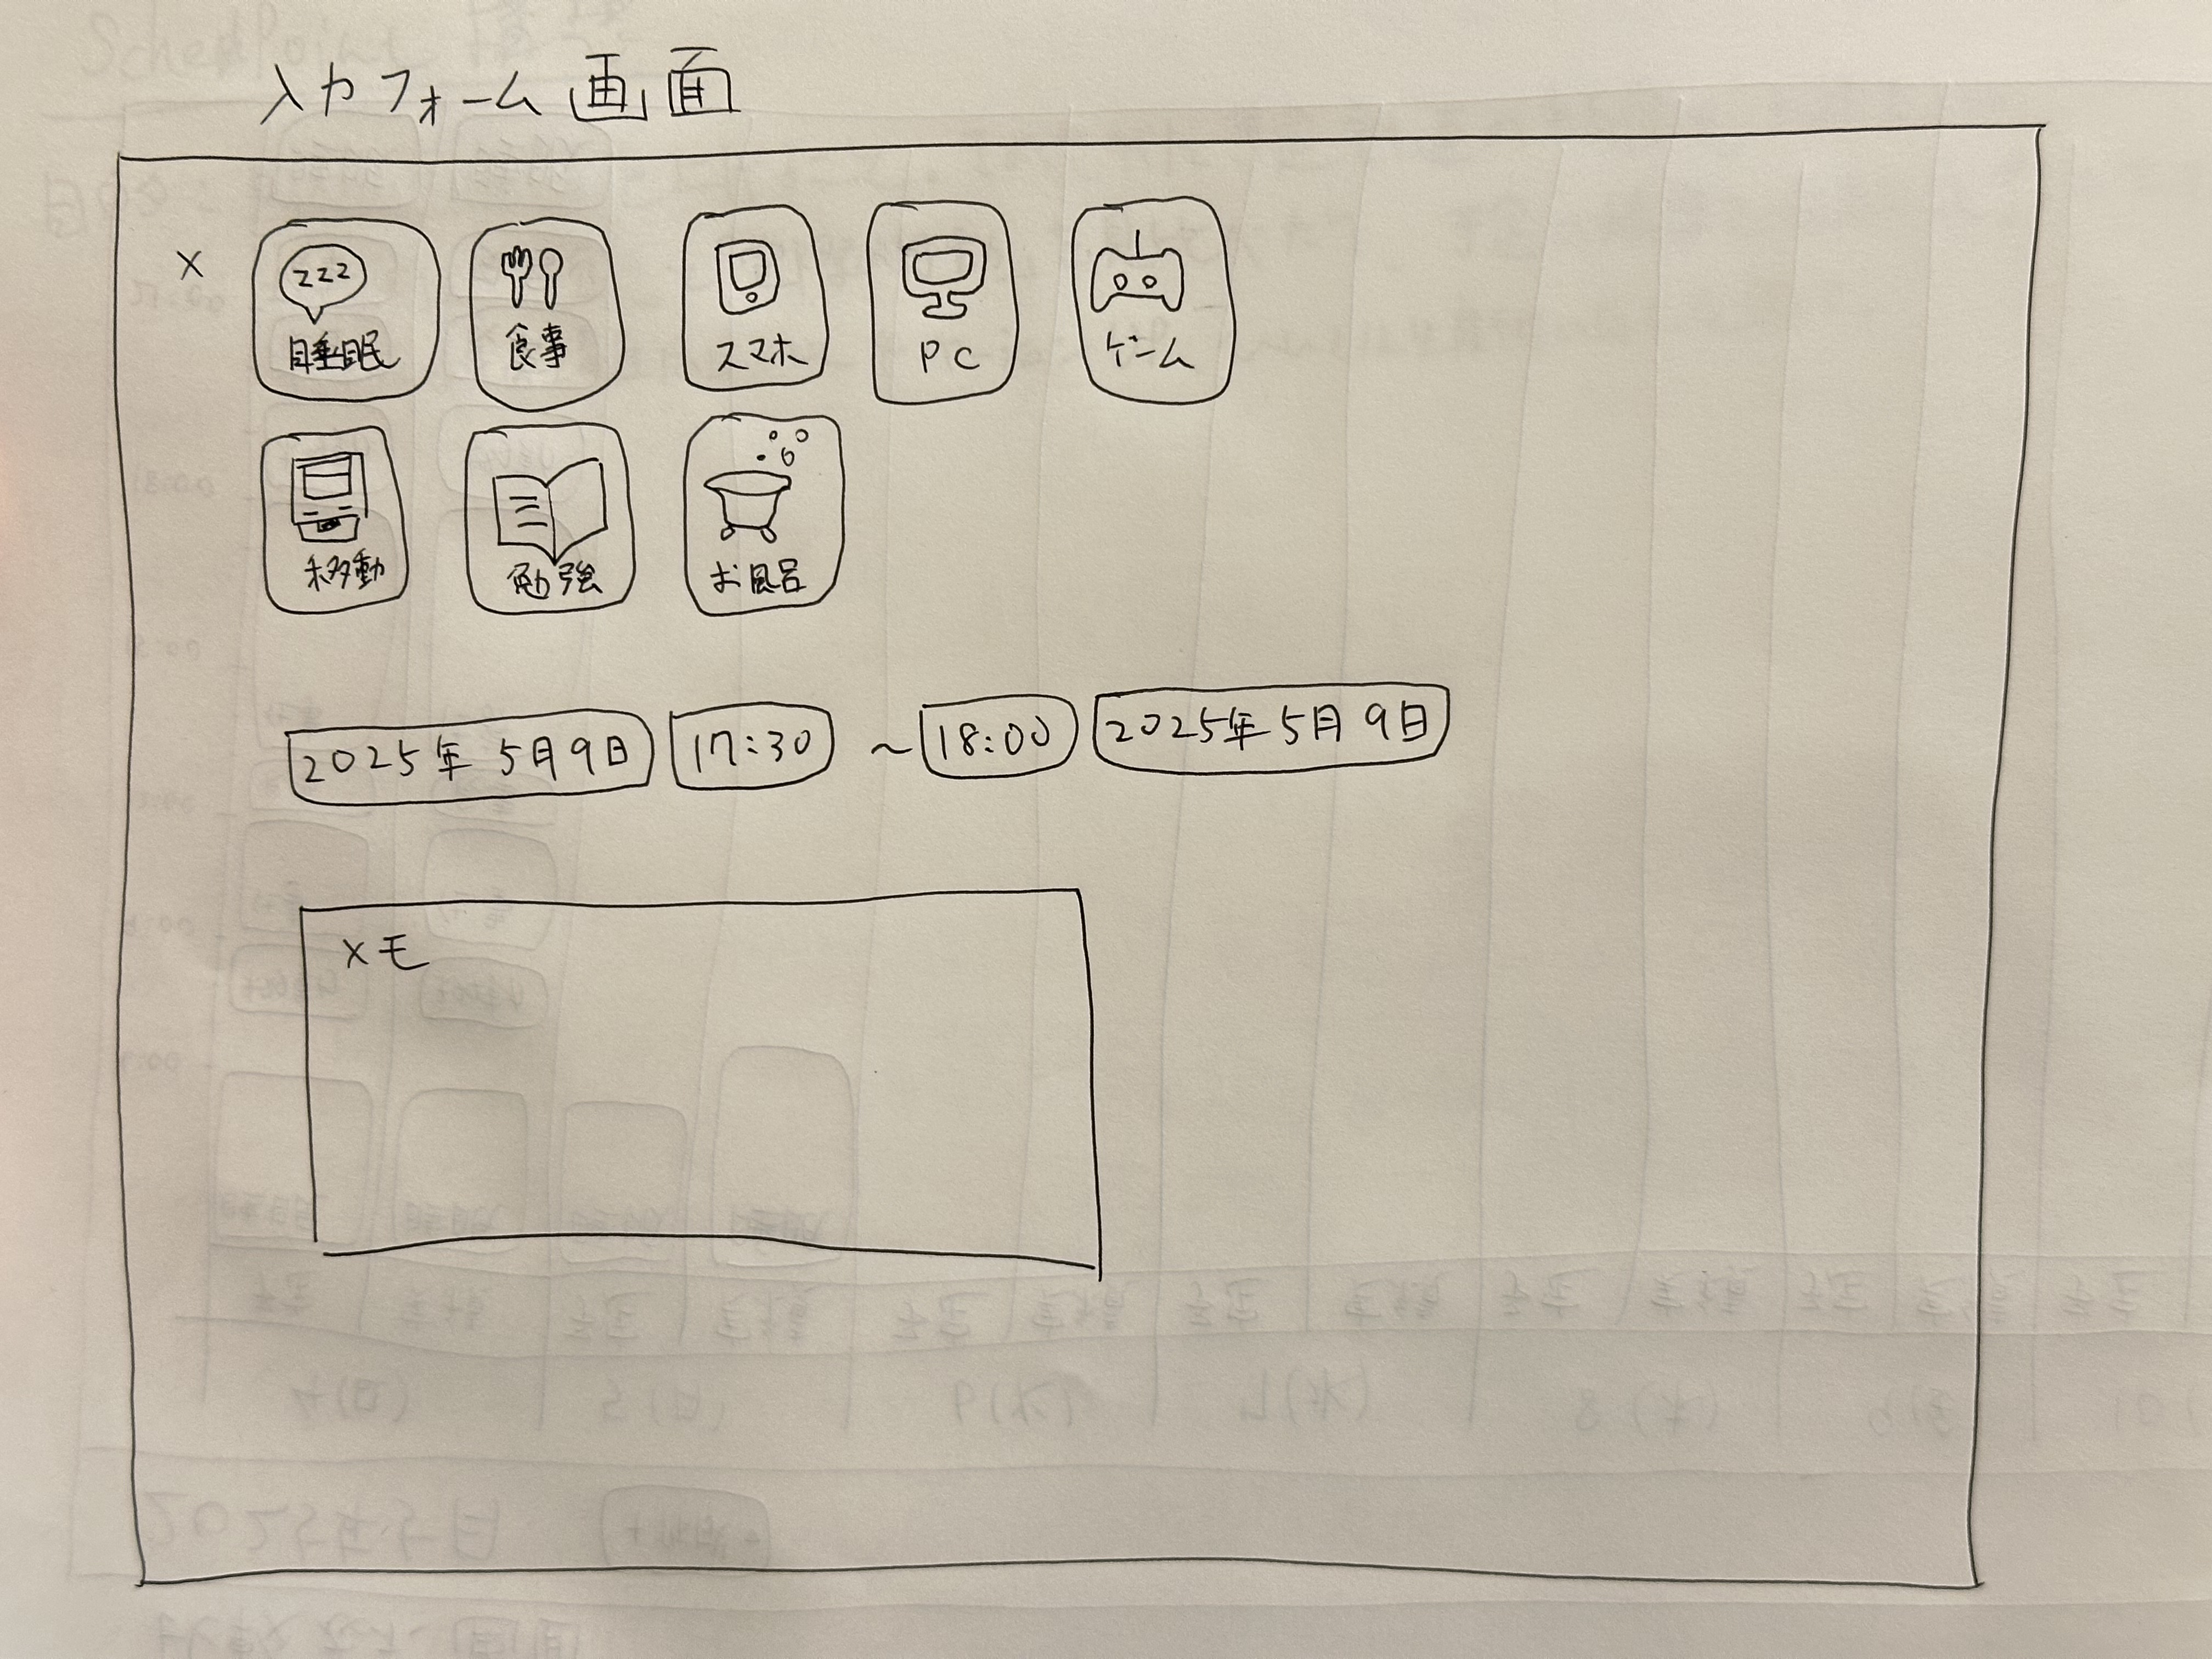 入力フォーム画面
×
zzz
睡眠
食事
スマホ
PC
ゲーム
移動
勉強
お風呂
2025年5月9日 17:30 ～ 18:00 2025年5月9日
メモ